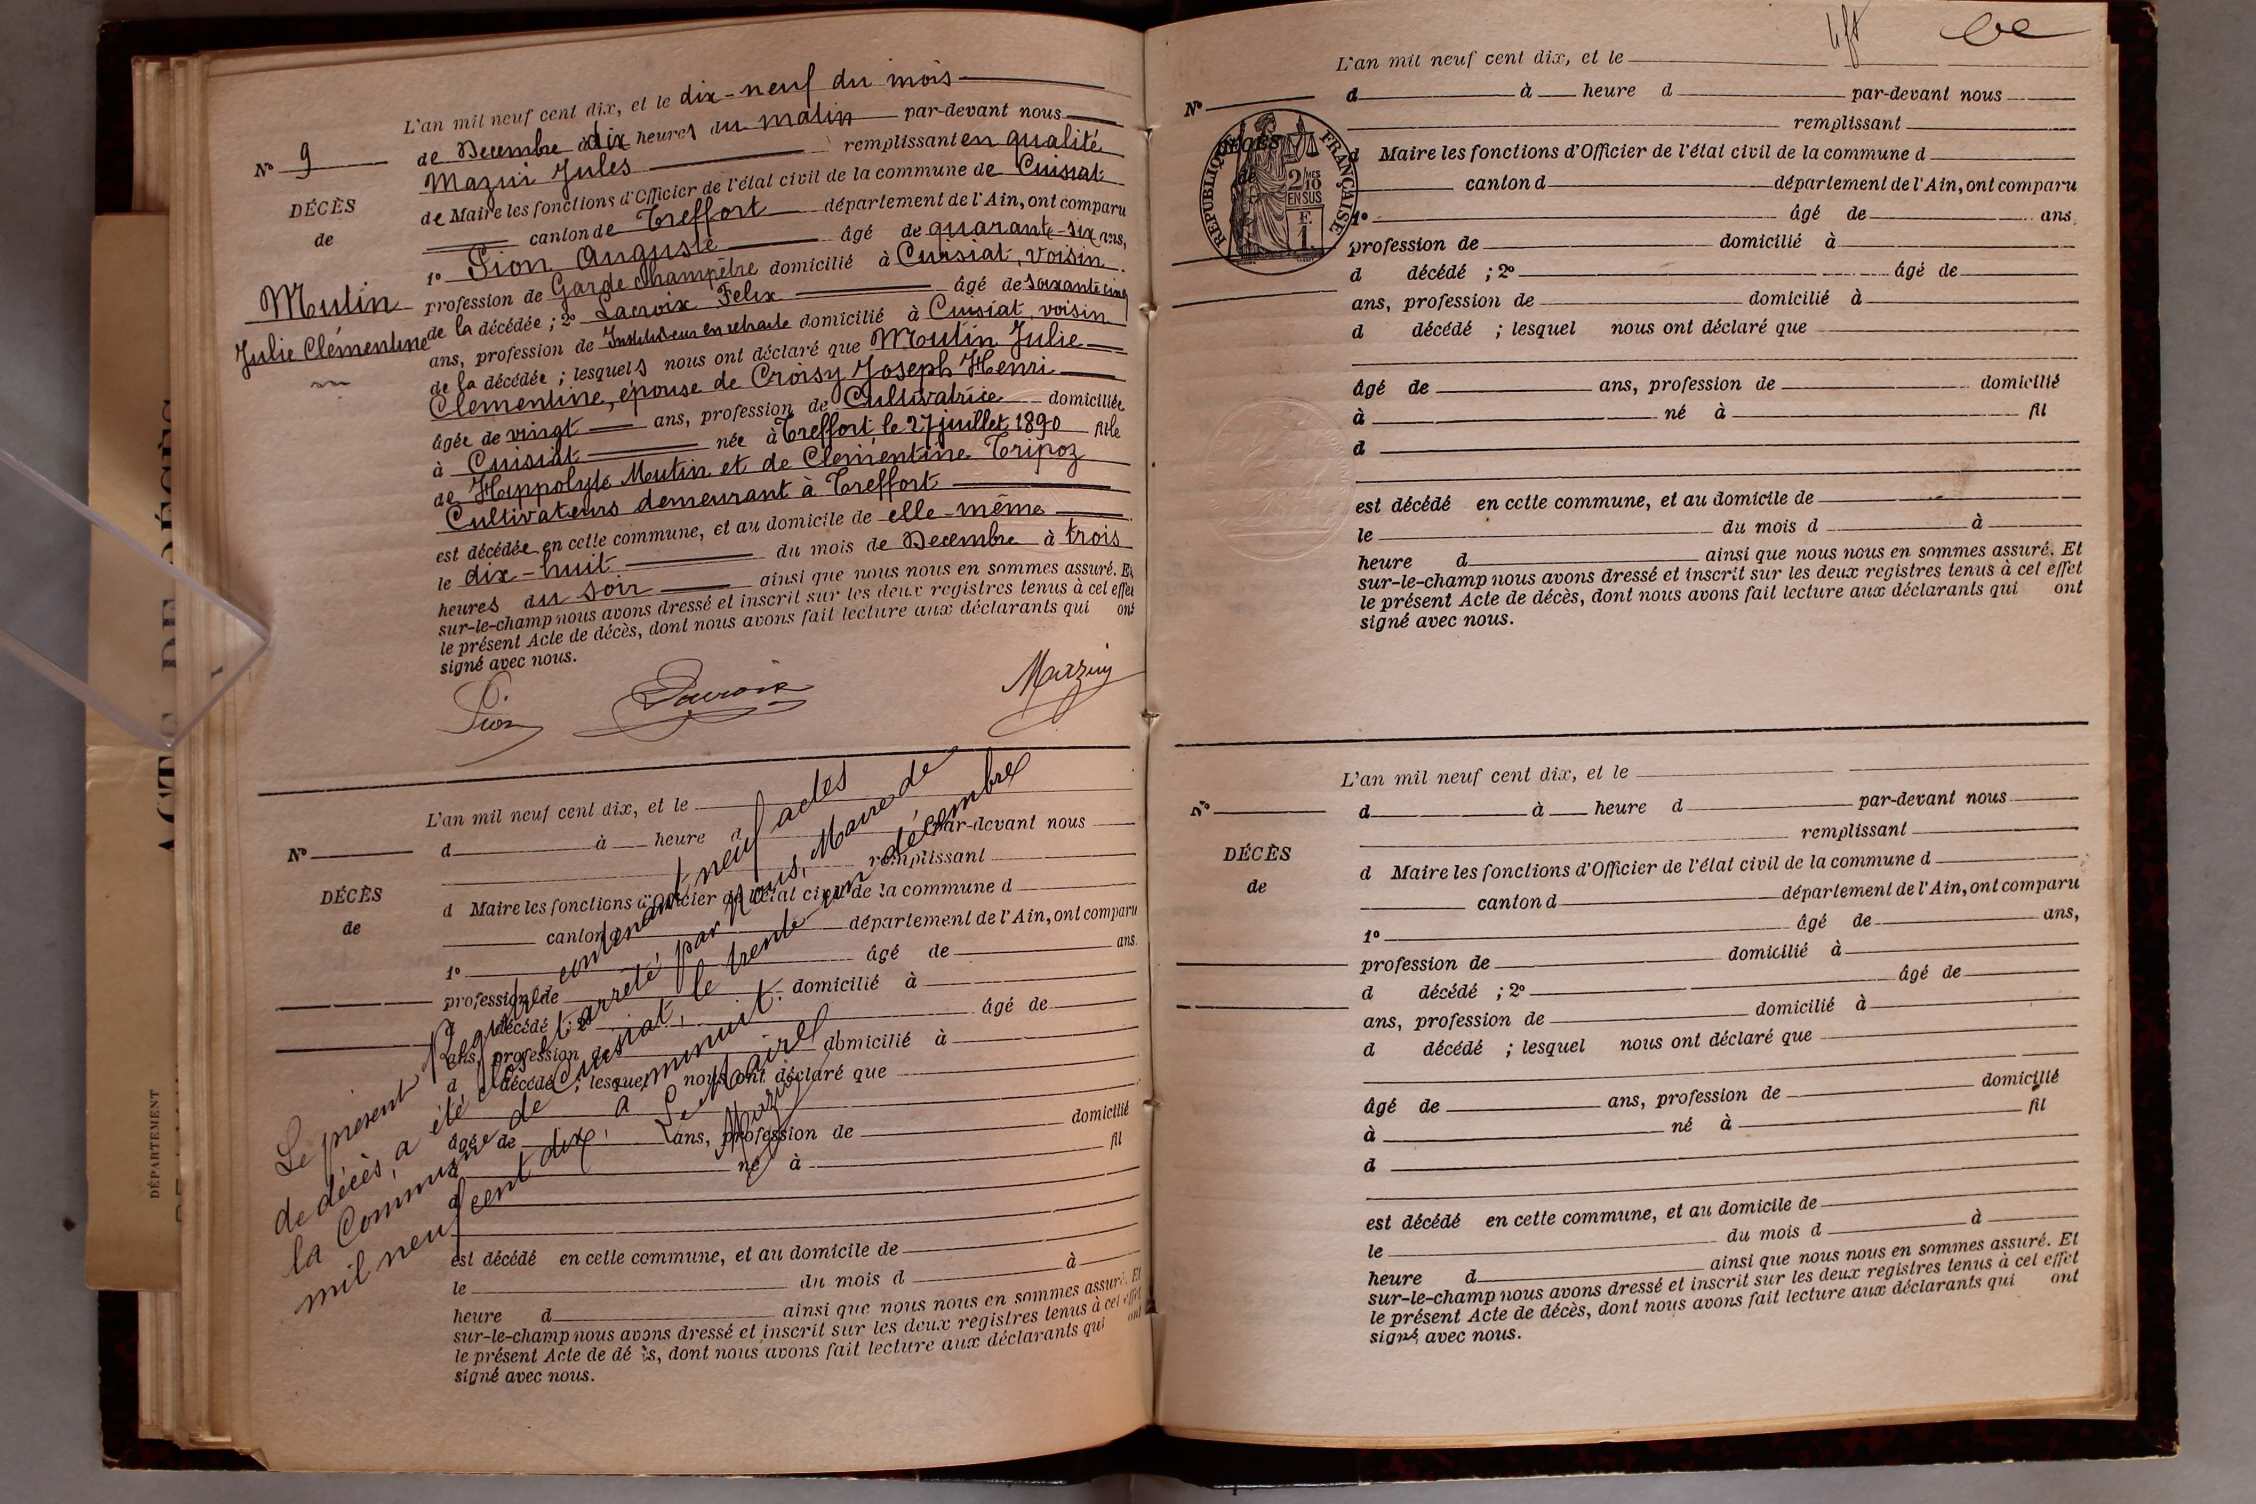 L'an mil neuf cent dix, et le dix-neuf du mois
de Decembre à dix heures du matin par-devant nous
Mazui Jules remplissant en qualité
de Maire les fonctions d'Officier de l'état civil de la commune de Cuisiat
canton de Treffort département de l'Ain, ont comparu
1º Pion Auguste âgé de quarante-six ans,
profession de Garde champêtre domicilié à Cuisiat, voisin
de la décédée ; 2º Lacroix Felix âgé de soixante cinq
ans, profession de Instituteur en retraite domicilié à Cuisiat, voisin
de la décédée ; lesquels nous ont déclaré que Moutin Julie
Clementine, épouse de Croisy Joseph Henri
âgée de vingt ans, profession de Cultivatrice domiciliée
à Cuisiat née à Treffort le 27 juillet 1890 fille
de Hippolyte Moutin et de Clementine Tripoz
Cultivateurs demeurant à Treffort
est décédée en cette commune, et au domicile de elle-même
le dix-huit du mois de Decembre à trois
heures du soir ainsi que nous nous en sommes assuré. Et
sur-le-champ nous avons dressé et inscrit sur les deux registres tenus à cet effet
le présent Acte de décès, dont nous avons fait lecture aux déclarants qui ont
signé avec nous.
Nº 9
DÉCÈS
de
Moutin
Julie Clémentine
Pion Lacroix Mazuy
L'an mil neuf cent dix, et le
d à heure d par-devant nous
remplissant
d Maire les fonctions d'Officier de l'état civil de la commune d
canton d département de l'Ain, ont comparu
1º âgé de ans.
profession de domicilié à
d décédé ; 2º âgé de
ans, profession de domicilié à
d décédé ; lesquel nous ont déclaré que
âgé de ans, profession de domicilié
à né à fil
d
est décédé en cette commune, et au domicile de
le du mois d à
heure d ainsi que nous nous en sommes assuré. Et
sur-le-champ nous avons dressé et inscrit sur les deux registres tenus à cet effet
le présent Acte de décès, dont nous avons fait lecture aux déclarants qui ont
signé avec nous.
Nº
DÉCÈS
de
Le présent Registre contenant neuf actes
de décès, a été clos et arrêté par Nous, Maire de
la Commune de Cuisiat, le trente-un décembre
mil neuf cent dix, à minuit.
Le Maire
Mazuy
DÉPARTEMENT
L'an mil neuf cent dix, et le
d à heure d par-devant nous
remplissant
d Maire les fonctions d'Officier de l'état civil de la commune d
canton d département de l'Ain, ont comparu
1º âgé de ans,
profession de domicilié à
d décédé ; 2º âgé de
ans, profession de domicilié à
d décédé ; lesquel nous ont déclaré que
âgé de ans, profession de domicilié
à né à fil
d
est décédé en cette commune, et au domicile de
le du mois d à
heure d ainsi que nous nous en sommes assuré. Et
sur-le-champ nous avons dressé et inscrit sur les deux registres tenus à cet effet
le présent Acte de décès, dont nous avons fait lecture aux déclarants qui ont
signé avec nous.
Nº
DÉCÈS
de
RÉPUBLIQUE FRANÇAISE
2/10MES
EN SUS
F.
1.
L'an mil neuf cent dix, et le
d à heure d par-devant nous
remplissant
d Maire les fonctions d'Officier de l'état civil de la commune d
canton d département de l'Ain, ont comparu
1º âgé de ans,
profession de domicilié à
d décédé ; 2º âgé de
ans, profession de domicilié à
d décédé ; lesquel nous ont déclaré que
âgé de ans, profession de domicilié
à né à fil
d
est décédé en cette commune, et au domicile de
le du mois d à
heure d ainsi que nous nous en sommes assuré. Et
sur-le-champ nous avons dressé et inscrit sur les deux registres tenus à cet effet
le présent Acte de décès, dont nous avons fait lecture aux déclarants qui ont
signé avec nous.
Nº
DÉCÈS
de